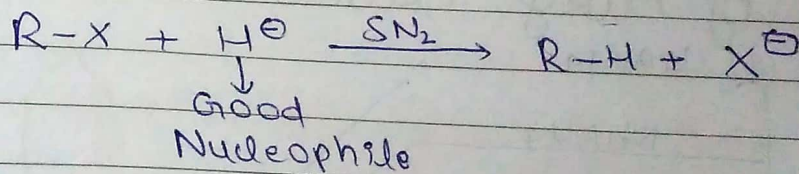 R-X + H⊖ SN₂ → R-H + X⊖
↓
Good
Nucleophile